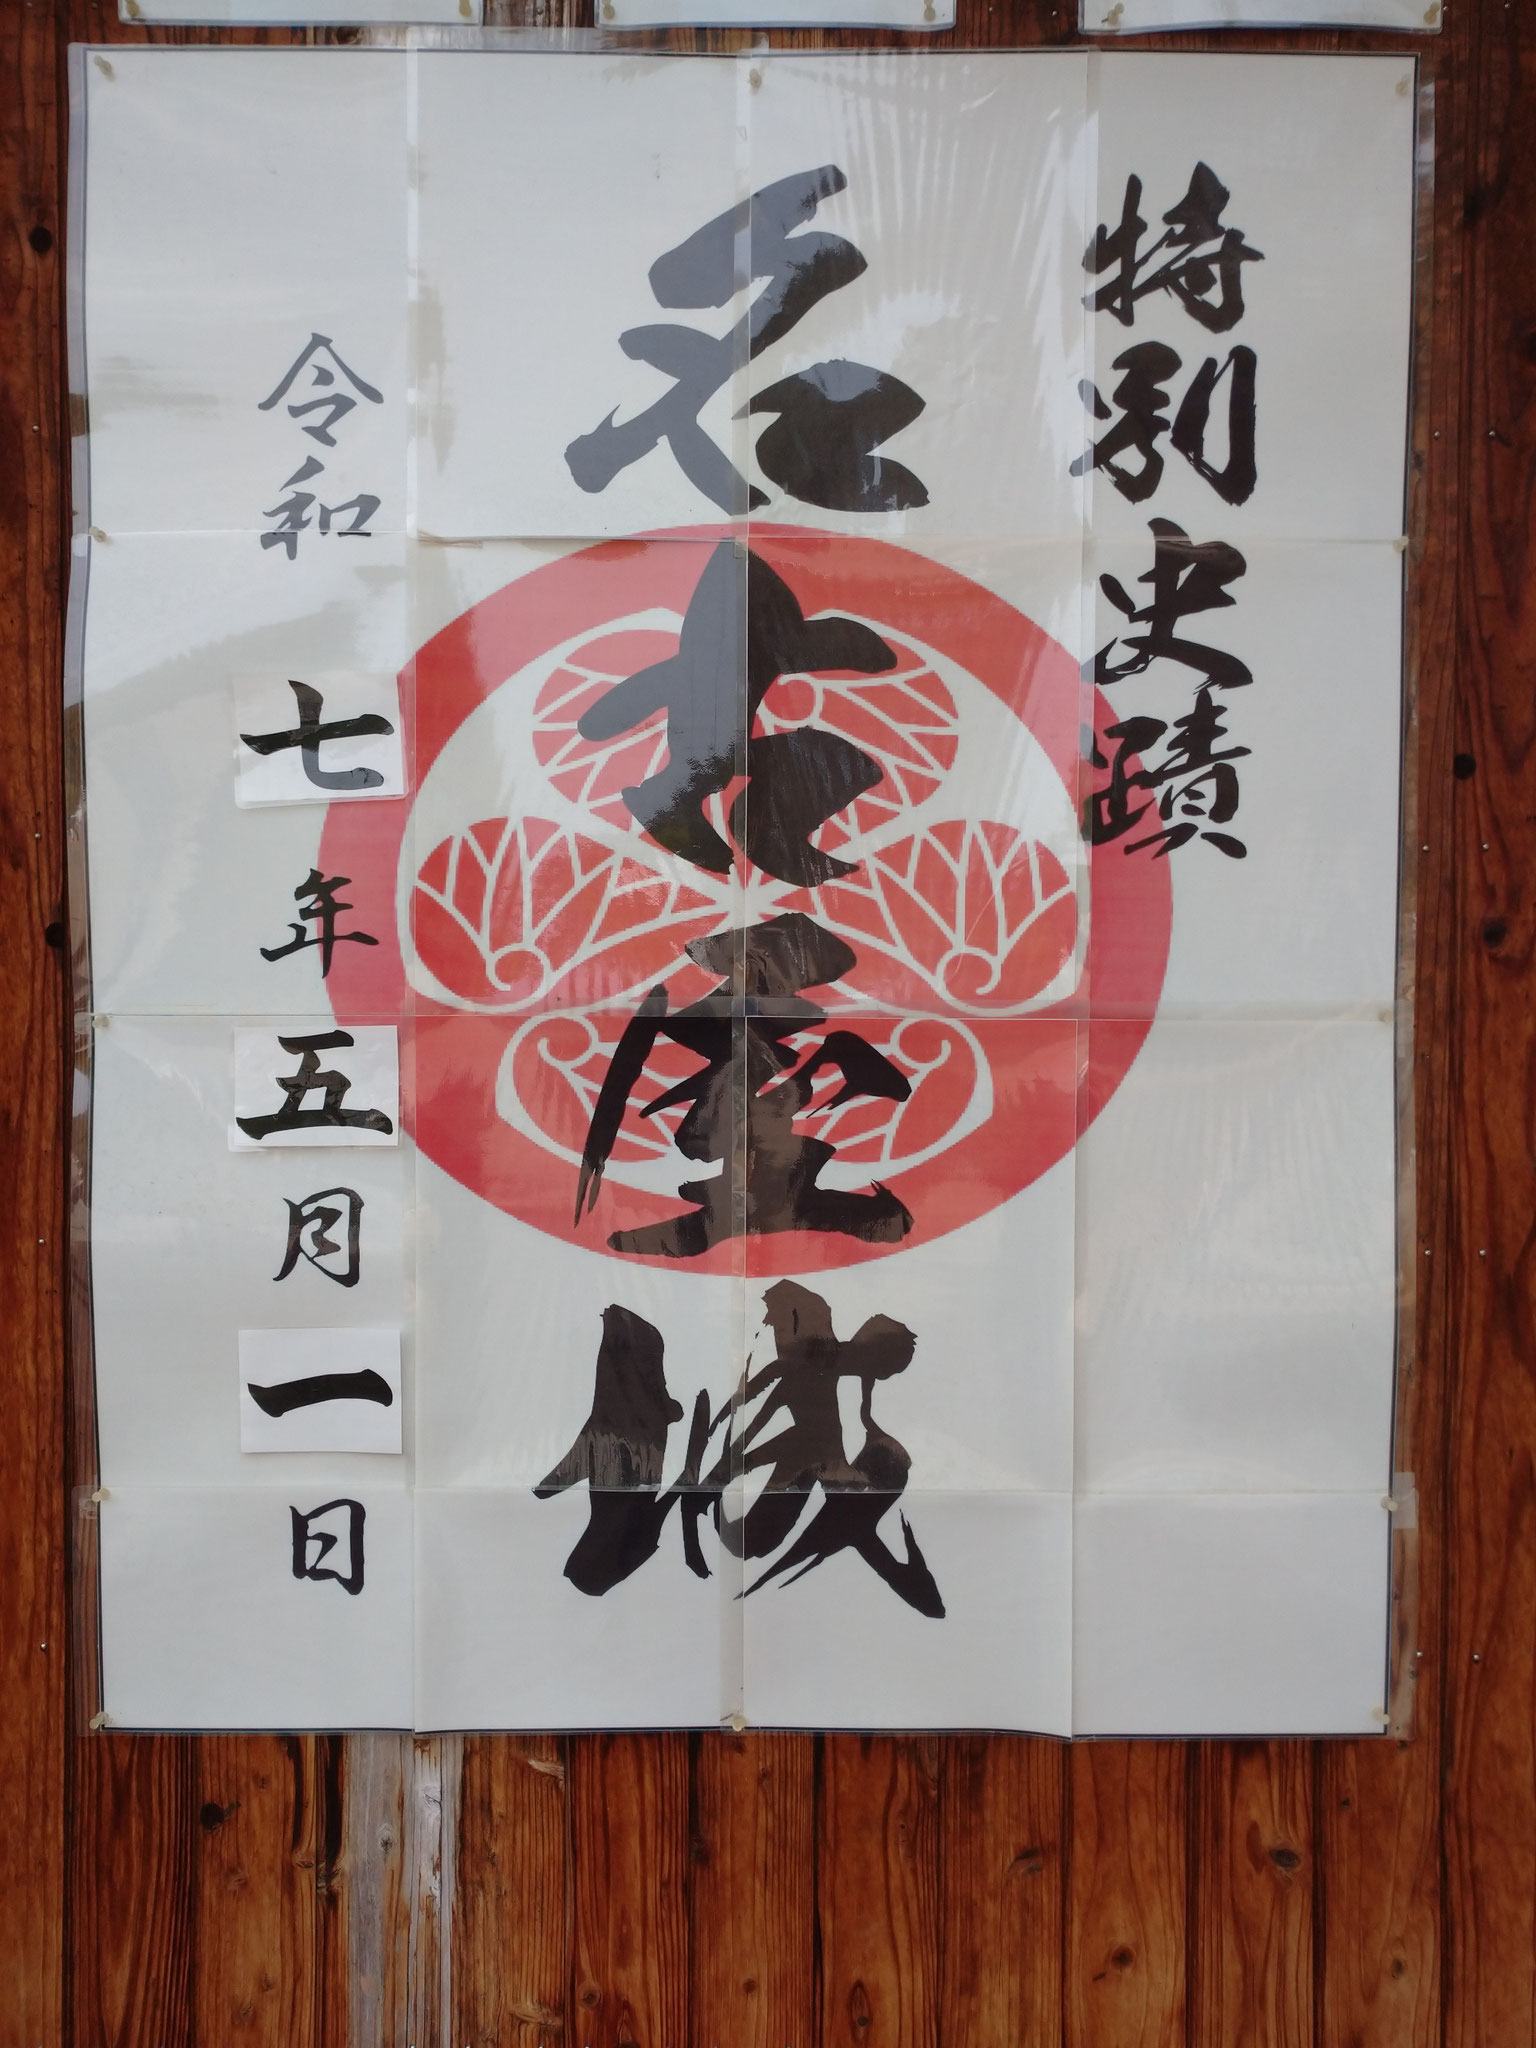 特別史蹟
名古屋城
令和七年五月一日